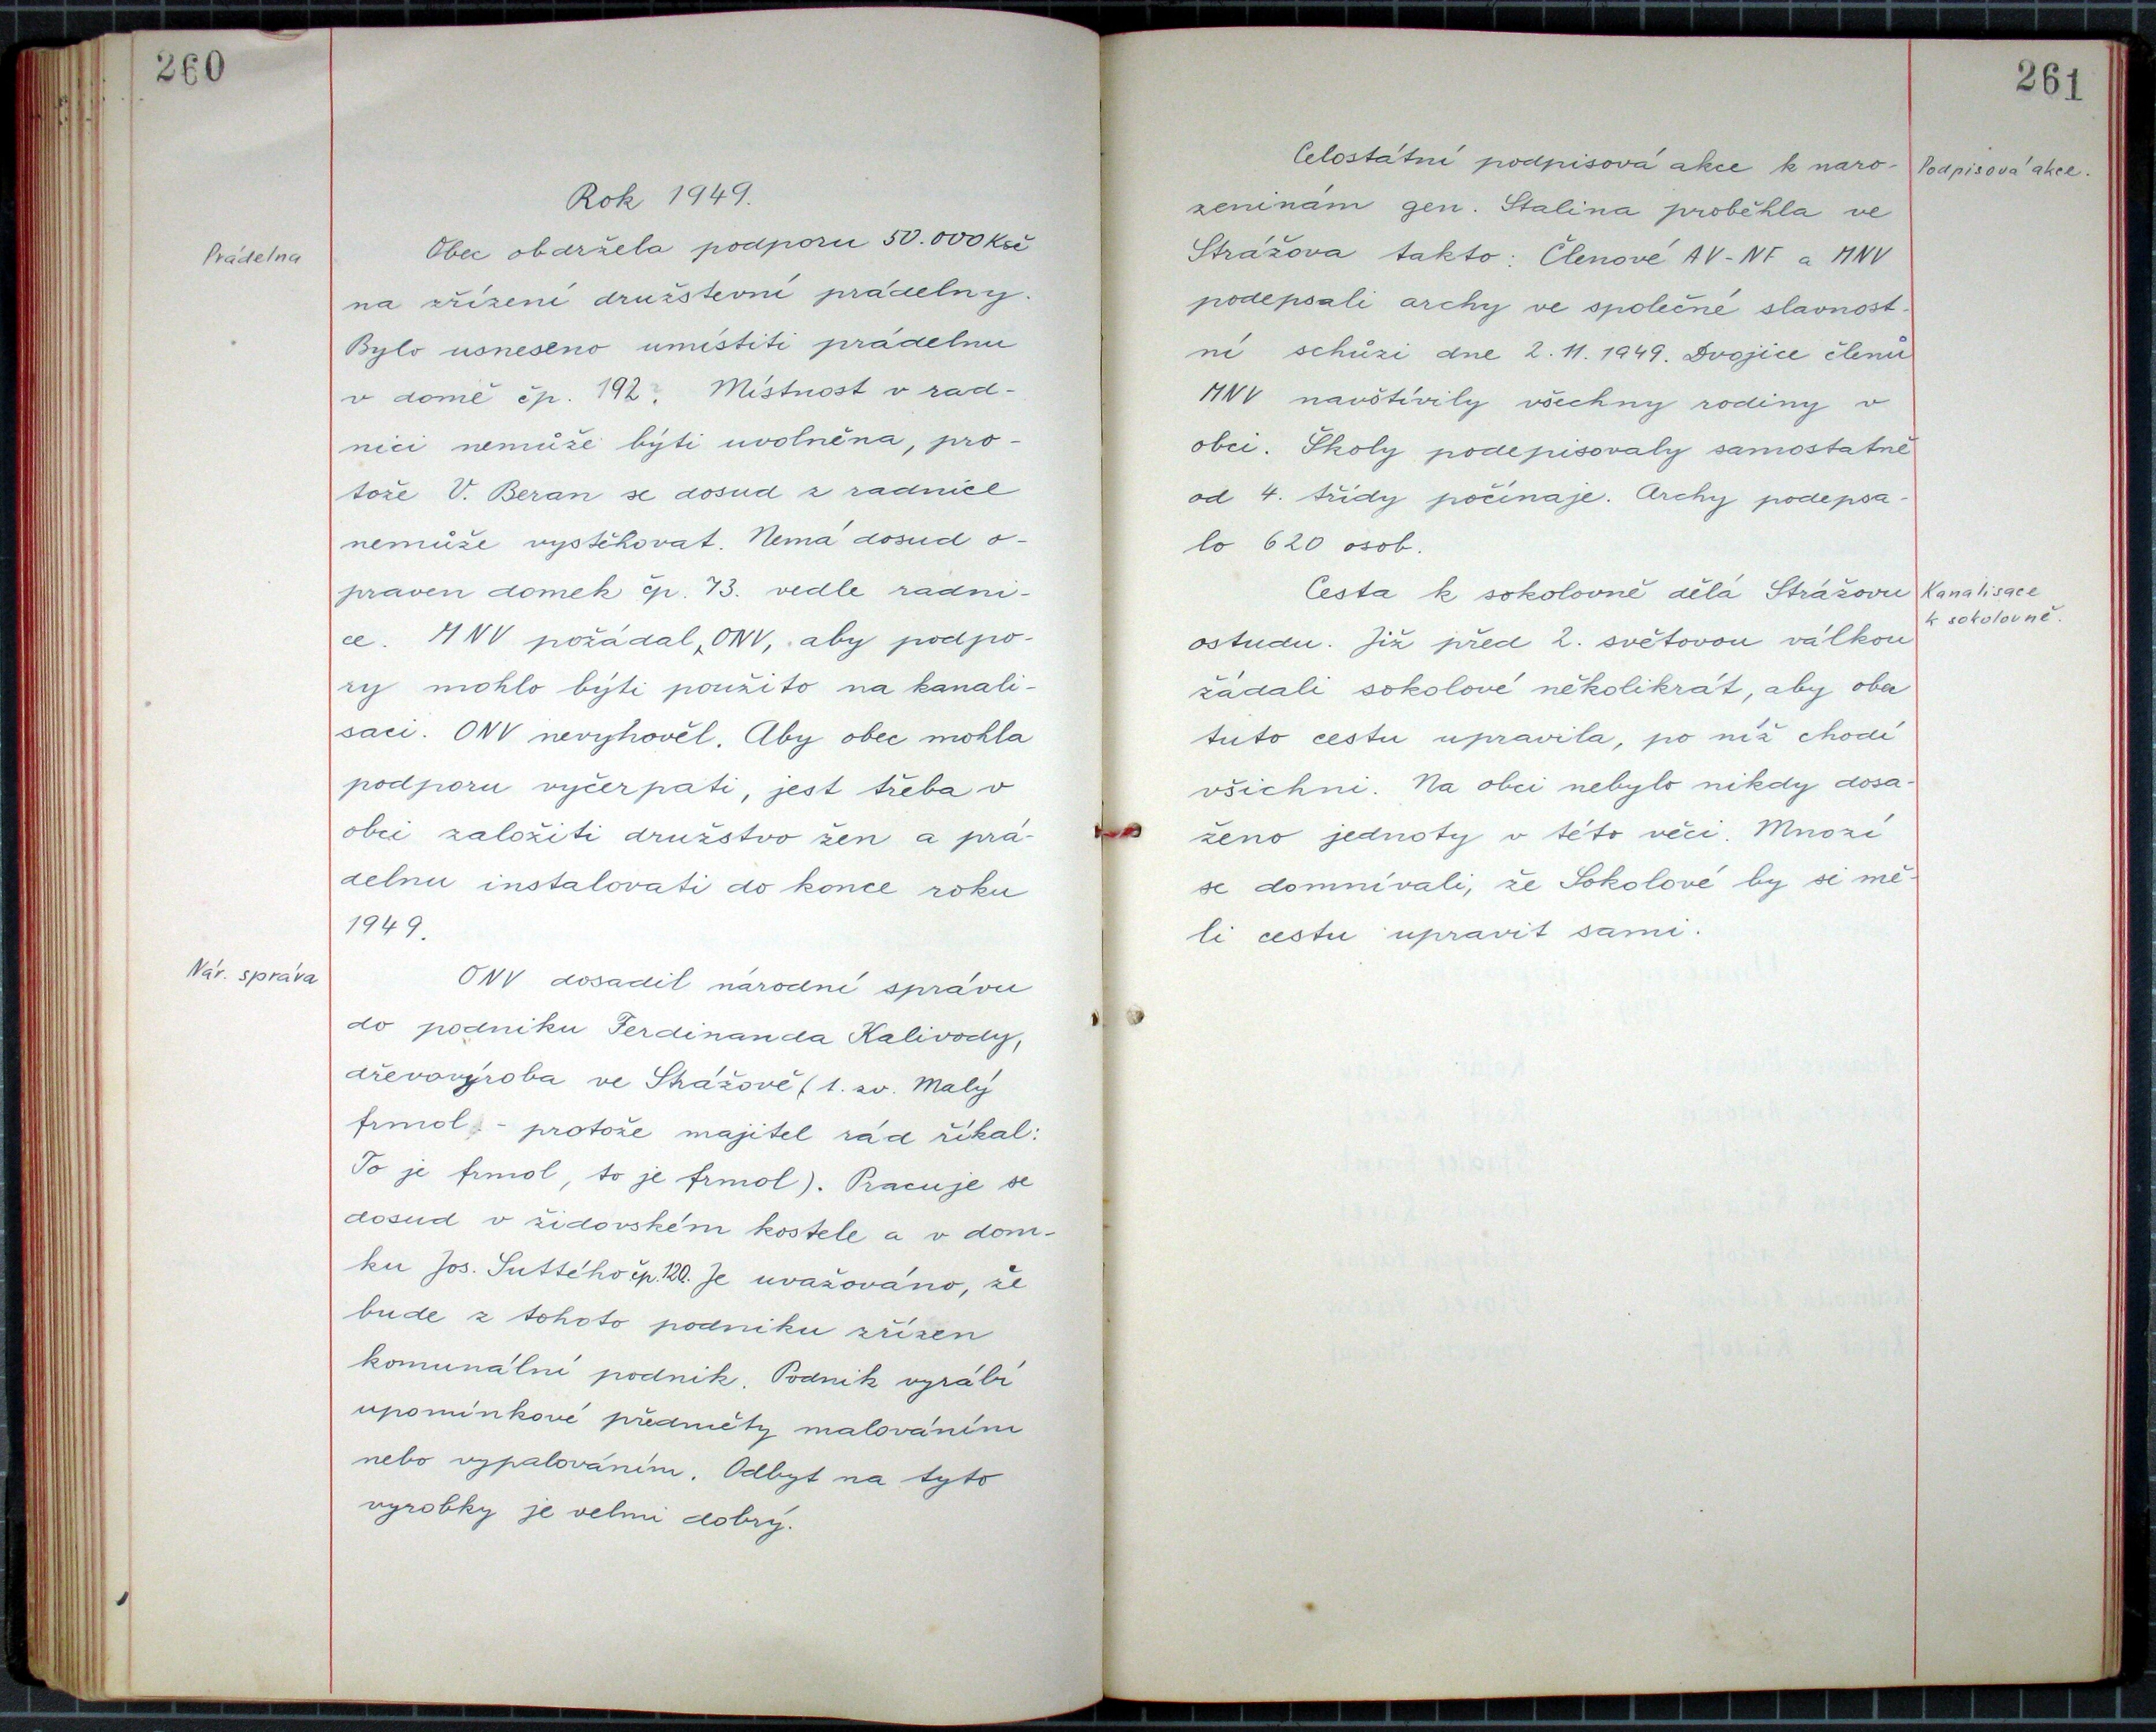 260
Rok 1949.
Prádelna
Obec obdržela podporu 50.000 Kčs
na zřízení družstevní prádelny.
Bylo usneseno umístiti prádelnu
v domě čp. 192. Místnost v rad-
nici nemůže býti uvolněna, pro-
tože V. Beran se dosud z radnice
nemůže vystěhovat. Nemá dosud o-
praven domek čp. 73. vedle radni-
ce. MNV požádal, ONV, aby podpo-
ry mohlo býti použito na kanali-
saci. ONV nevyhověl. Aby obec mohla
podporu vyčerpati, jest třeba v
obci založiti družstvo žen a prá-
delnu instalovati do konce roku
1949.
Nár. správa
ONV dosadil národní správu
do podniku Ferdinanda Kalivody,
dřevovýroba ve Strážově (t. zv. Malý
frmol - protože majitel rád říkal:
To je frmol, to je frmol). Pracuje se
dosud v židovském kostele a v dom-
ku Jos. Suttého čp. 120. Je uvažováno, že
bude z tohoto podniku zřízen
komunální podnik. Podnik vyrábí
upomínkové předměty malováním
nebo vypalováním. Odbyt na tyto
vyrobky je velmi dobrý.
261
Podpisová akce.
Celostátní podpisová akce k naro-
zeninám gen. Stalina proběhla ve
Strážova takto: Členové AV-NF a MNV
podepsali archy ve společné slavnost-
ní schůzi dne 2.11.1949. Dvojice členů
MNV navštívily všechny rodiny v
obci. Školy podepisovaly samostatně
od 4. třídy počínaje. Archy podepsa-
lo 620 osob.
Kanalisace
k sokolovně.
Cesta k sokolovně dělá Strážovu
ostudu. Již před 2. světovou válkou
žádali sokolové několikrát, aby obec
tuto cestu upravila, po níž chodí
všichni. Na obci nebylo nikdy dosa-
ženo jednoty v této věci. Mnozí
se domnívali, že Sokolové by si mě-
li cestu upravit sami.